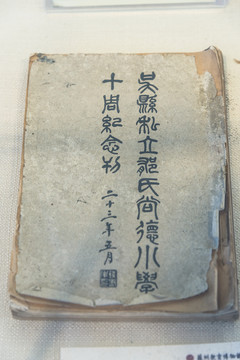 吳縣私立鄒氏尚德小學
十周紀念刊
二十三年五月